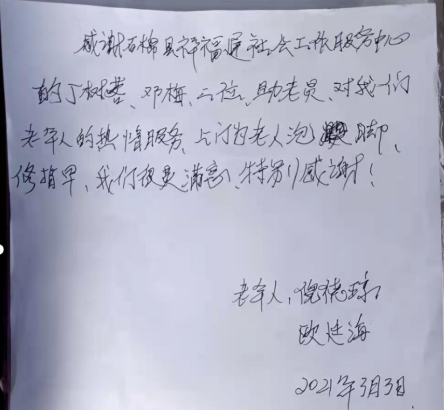 感谢石棉县祥福通社会工作服务中心
的丁树蓉、邓梅、二位、助老员、对我们
老年人的热情服务、上门为老人泡脚、
修指甲、我们很是满意、特别感谢!
老年人、倪德琼
欧廷海
2021年3月3日